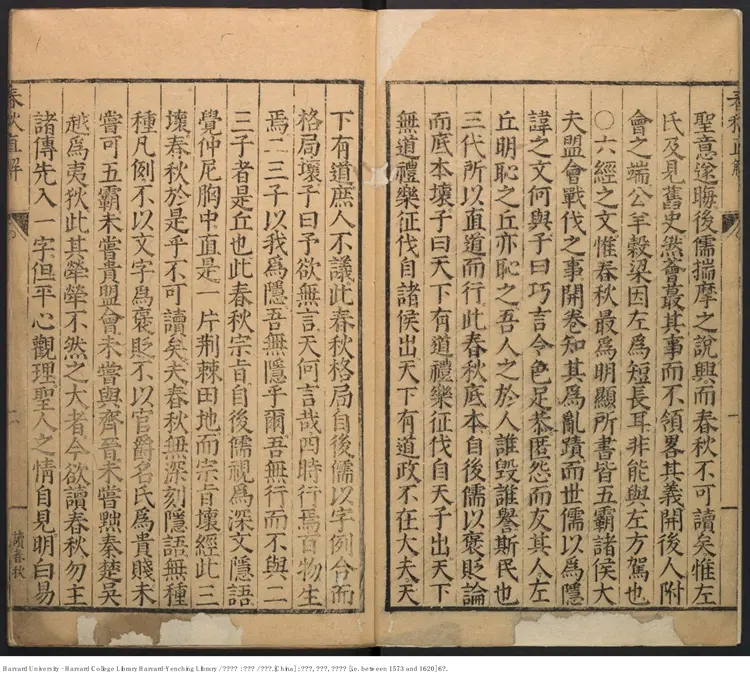 聖意遂晦後儒揣摩之說興而春秋不可讀矣惟左
氏及見舊史然薈蕞其事而不領畧其義開後人附
會之端公羊穀梁因左為短長耳非能與左方駕也
○六經之文惟春秋最為明顯所書皆五霸諸侯大
夫盟會戰伐之事開卷知其為亂蹟而世儒以為隱
諱之文何與子曰巧言令色足恭匿怨而友其人左
丘明恥之丘亦恥之吾人之於人誰毀誰譽斯民也
三代所以直道而行此春秋底本自後儒以褒貶論
而底本壞子曰天下有道禮樂征伐自天子出天下
無道禮樂征伐自諸侯出天下有道政不在大夫天
春秋直解
下有道庶人不議此春秋格局自後儒以字例合而
格局壞子曰予欲無言天何言哉四時行焉百物生
焉二三子以我為隱吾無隱乎爾吾無行而不與二
三子者是丘也此春秋宗旨自後儒視為深文隱語
覺仲尼胸中直是一片荆棘田地而宗旨壞經此三
壞春秋於是乎不可讀矣夫春秋無深刻隱語無種
種凡例不以文字為褒貶不以官爵名氏為貴賤未
嘗可五霸未嘗貴盟會未嘗與齊晉未嘗黜秦楚吳
越為夷狄此其犖犖不然之大者今欲讀春秋勿主
諸傳先入一字但平心觀理聖人之情自見明白易
春秋直解
讀春秋
Harvard University - Harvard College Library Harvard-Yenching Library / ???? : ??? / ???. [China] : ???, ???, ???? [i.e. between 1573 and 1620] 6?.